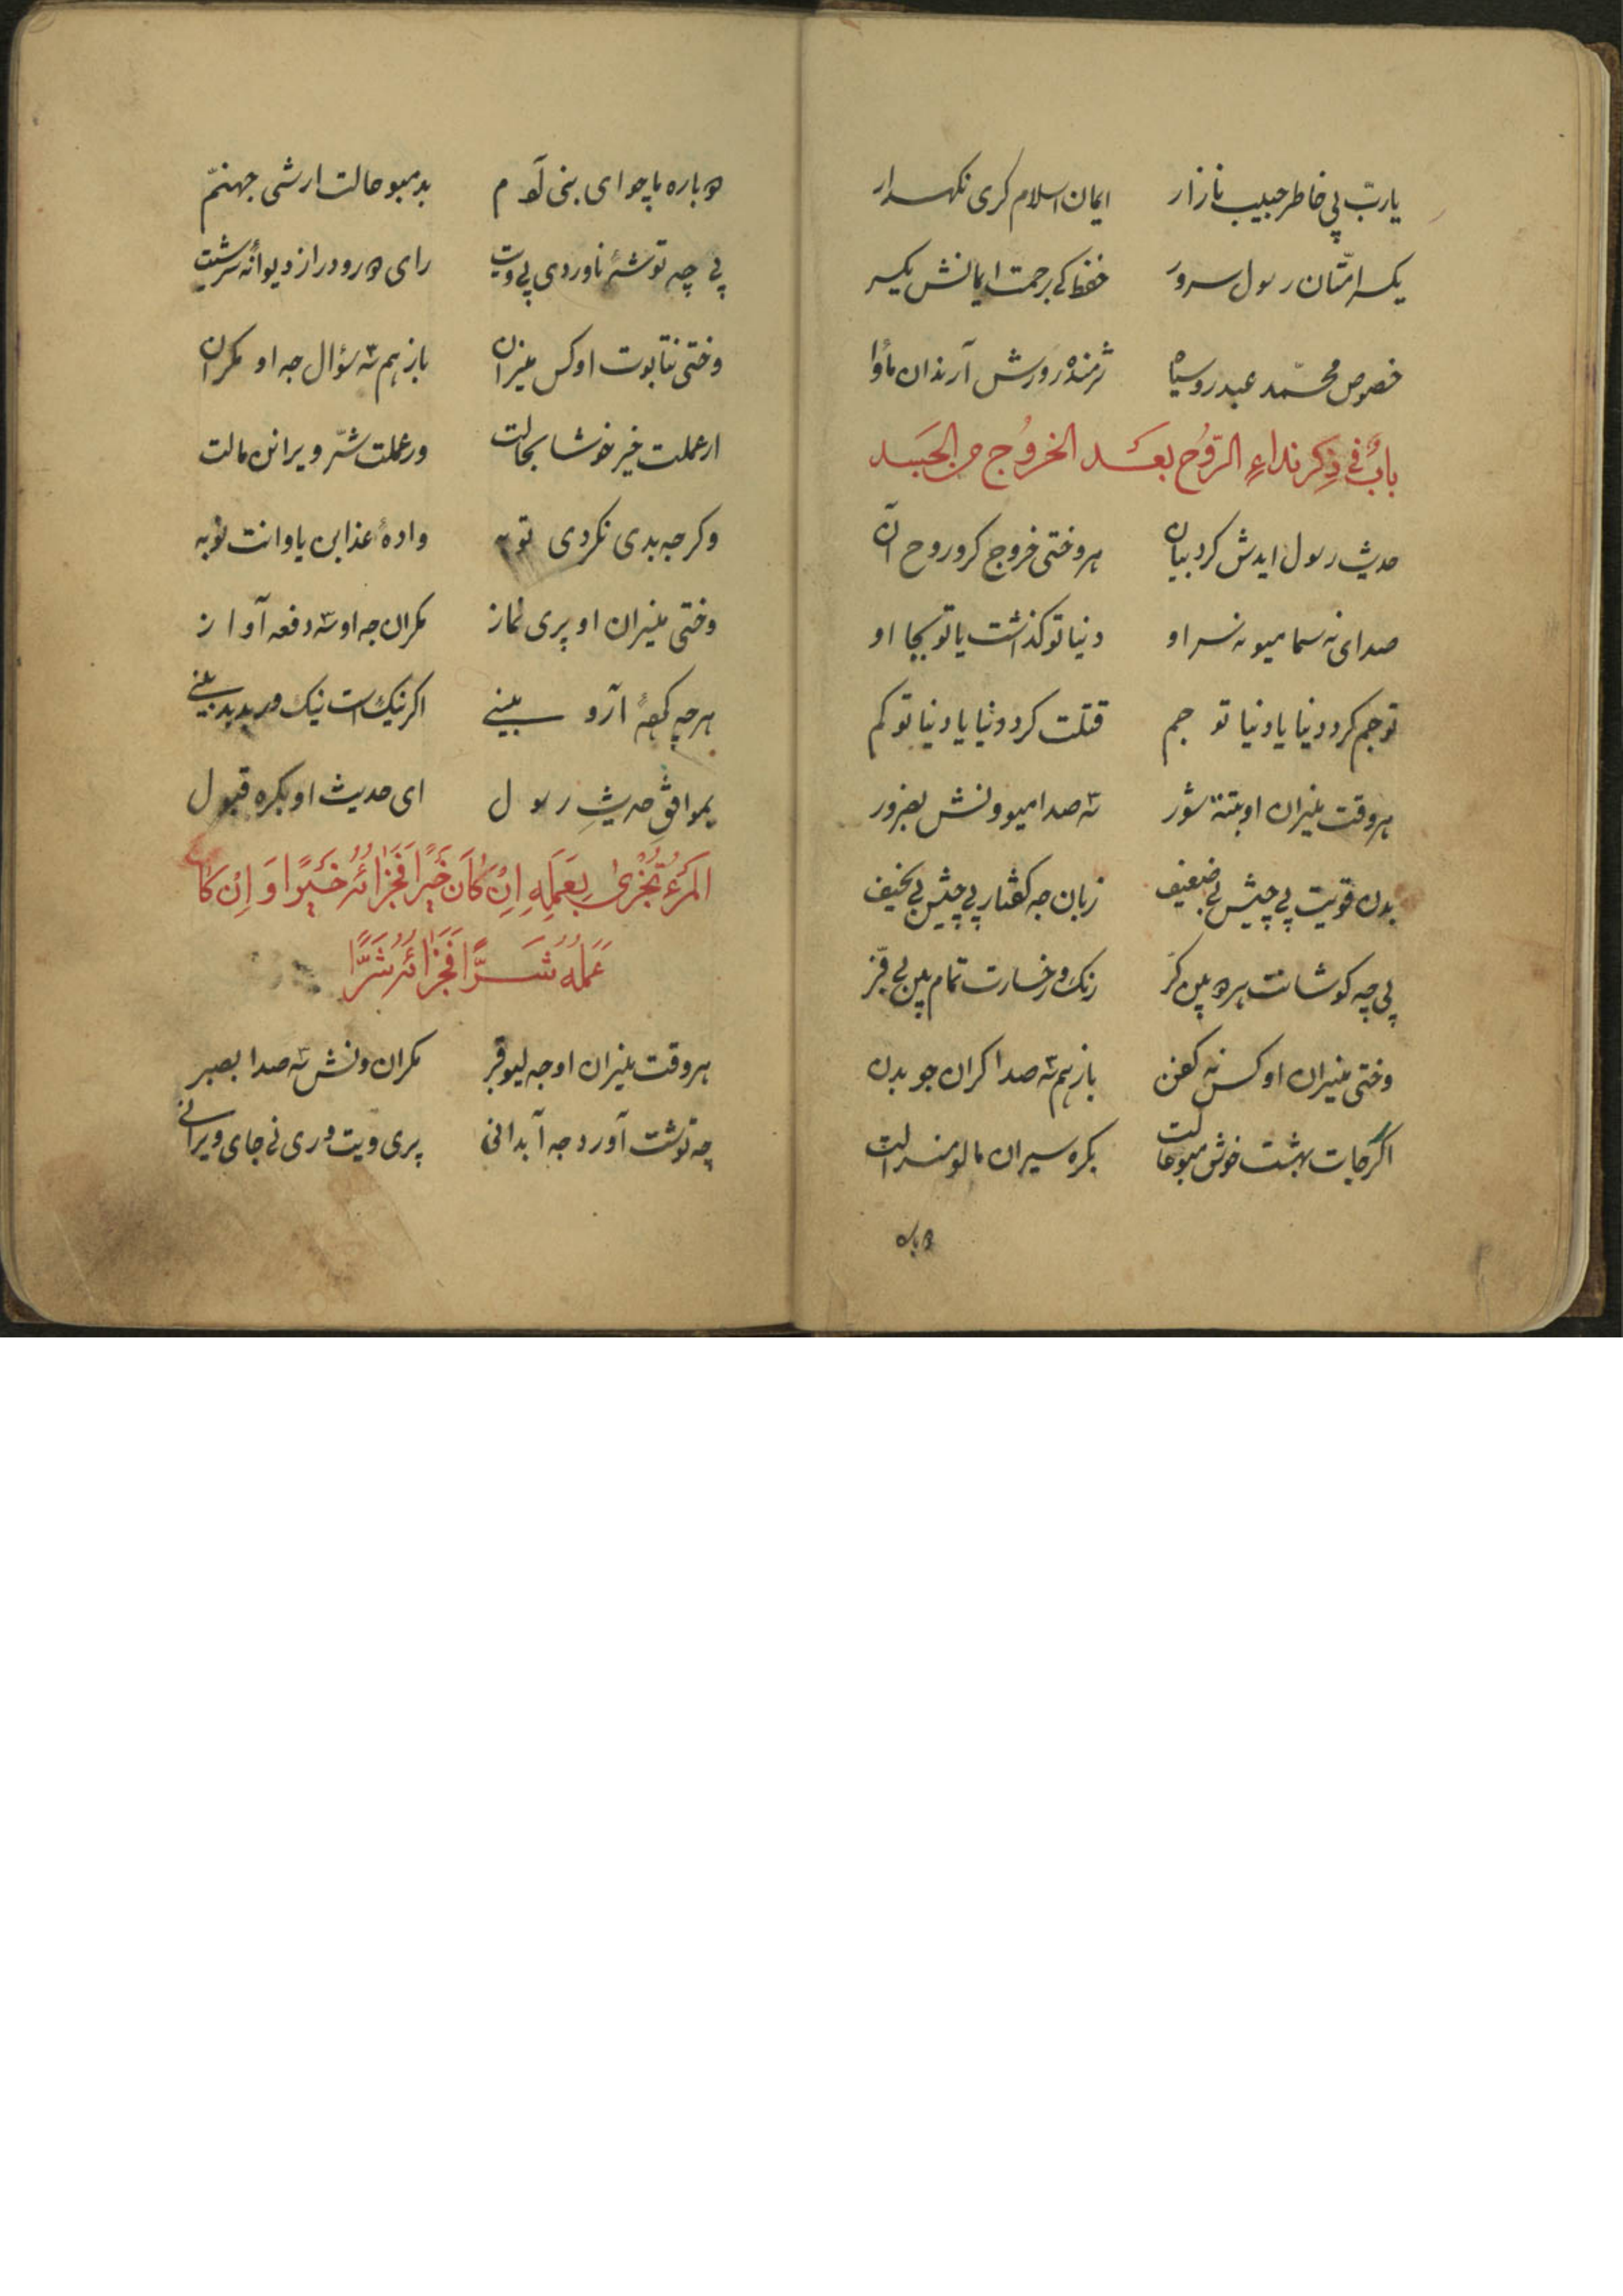 یاربّ پی خاطر حبیب نازار ایمان اسلام کری نکهدار
یکسر امّتان رسول سرور حفظ کی برحمت ایمانش یکسر
خصوص محمّد عبد روسیاه شرمنده رورش آرندان ماؤا
بابٌ فی ذِکر نداءِ الرّوُح بعَد الخروُج من الجسَد
حدیث رسول ایدش کرد بیان هر وختی خروج کرو روح آن
صدای نه سما میو نه سر او دنیا تو کذاشت یا تو بجا او
تو جم کرد دنیا یا دنیا تو جم قتلت کرد دنیا یا دنیا تو کم
هر وقت منیران او بتنۀ شور سه صدا میو ونش بضرور
بدن قویت پی چیش بی ضعیف زبان جه کفتار پی چیش بی نحیف
پی چه کوشانت هرد پین کرّ رنک و رخسارت تمام پین بی فرّ
وختی منیران او کس نه کفن باز هم سه صدا کران جو بدن
اکر جات بهشت خوش مبو حالت بکره سیران مالو منزلت
دباره
دباره باچو ای بنی آدم بد مبو حالت ار شی جهنّم
پی چه توشۀ ناوردی پی ویت رای دور و دراز دیوانۀ سرشیت
وختی نتابوت او کس منیران باز هم سه سؤال جه او مکران
ار عملت خیر خوشا بحالت ور عملت شرّ ویرانن مالت
وکر جه بدی نکردی توبه وادۀ عذابن یا وانت نوبه
وختی منیران او پری نماز مکران جه او سه دفعه آواز
هر چه کردۀ آرو بینی اکر نیک است نیک ور بد بد بینی
بموافق حدیثِ رسول ای حدیث او بکره قبول
المَرءُ تُجْزیٰ بِعَمَلِهِ اِنْ کٰانَ خَیْراً فَجَزٰائُهُ خَیْراً وَ اِنْ کٰا
عَمَلُهُ شَرّاً فَجَزٰائُهُ شَرّاً
هر وقت منیران او جه لیو قبر مکران ونش سه صدا بصبر
چه توشت آورد جه آبدانی پری ویت وری نی جای ویرانی